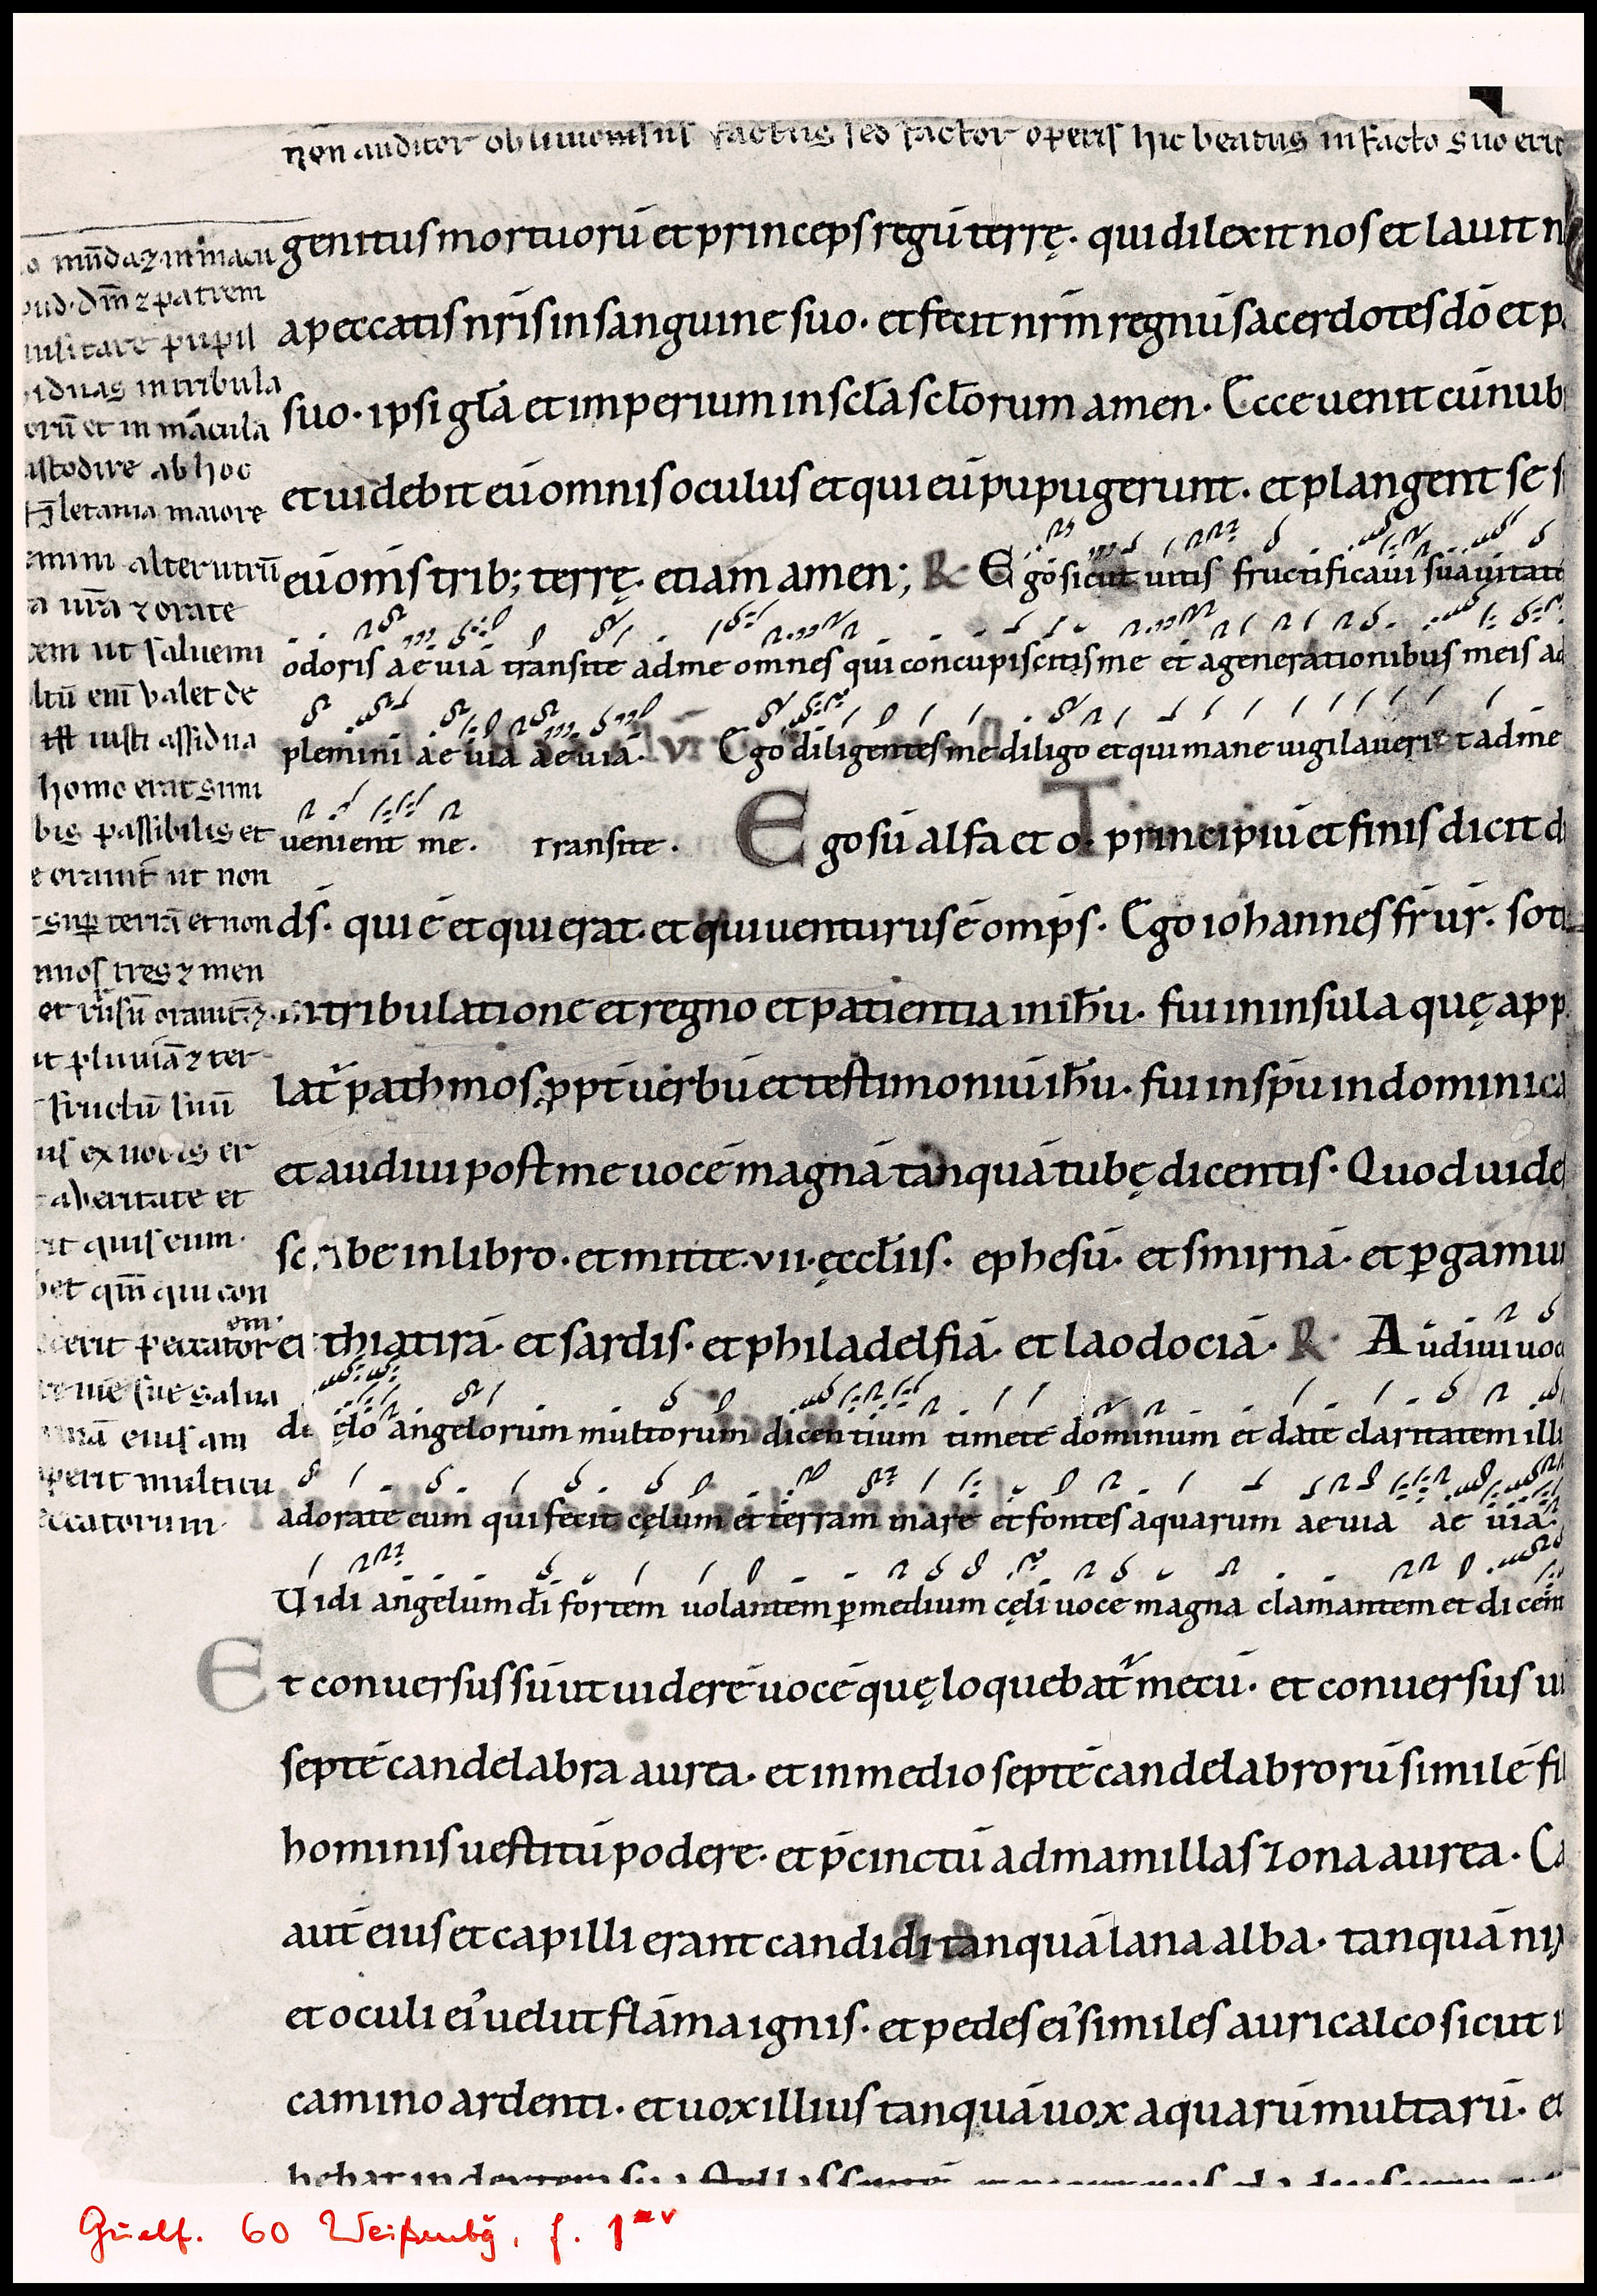 non auditor obliuionisus factus sed factor operis hic beatus in facto suo erit
genitus mortuorū et princeps regū terrę. qui dilexit nos et lauit
a peccatis nr̄is in sanguine suo. et fecit nr̄m regnū sacerdotes dō et
suo. ipsi gła et imperium in scła scłorum amen. Ecce uenit cū nub
et uidebit eū omnis oculus et qui eū pupugerunt. et plangent se
eū om̄s trib; terrę. etiam amen; R Ego sicut uitis fructificaui suauitatē
odoris aeuia transite ad me omnes qui concupiscitis me et a generationibus meis ad
plemini aeuia aeuia. V Ego diligentes me diligo et qui mane uigilauerit ad me
uenient me. Transite. Ego sū alfa et o. principiū et finis dicit
ds̄. qui ē et qui erat. et qui uenturus ē omp̄s. Ego iohannes fr̄ ur̄.
tribulatione et regno et patientia in ih̄u. fui in insula quę app
lat̄ pathmos. ppt̄ uerbū et testimoniū ih̄u. fui in sp̄u in dominica
et audiui post me uocē magnā tanquā tubę dicentis. Quod uide
scribe in libro. et mitte. vii. ęcclīis. ephesū. et smirnā. et pgamu
et thiatirā. et sardis. et philadelfiā. et laodociā. R Audiui uoc
de cęlo angelorum multorum dicentium timete dominum et date claritatem illi
adorate eum qui fecit cęlum et terram mare et fontes aquarum aeuia aeuia.
Uidi angelum dī fortem uolantem p medium cęli uoce magna clamantem et dicen
Et conuersus sū ut uiderē uocē quę loquebat̄ mecū. et conuersus ui
septē candelabra aurea. et in medio septē candelabrorū similē fi
hominis uestitū podere. et p̄cinctū ad mamillas zona aurea. Ca
aut̄ eius et capilli erant candidi tanquā lana alba. tanquā nix
et oculi ei' uelut flāma ignis. et pedes ei' similes auricalco sicut i
camino ardenti. et uox illius tanquā uox aquarū multarū. et
mūda⁊ inmacu
dm̄ ⁊ patrem
uisitare pupil
iduas in tribula
et in mācula
ab hoc
letania maiore
alterutrū
ur̄a ⁊ orate
ut saluemi
enī valet de
iusti assidua
homo erat simi
passibilis et
ut non
sup terrā et non
tres ⁊ men
et rursū orauit ⁊
pluuiā ⁊ ter
fructū suū
ex uobis er
a veritate et
quis eum.
qm̄ qui con
peccatorem
sue salua
eius am
operit multitu
peccatorum
Guelf. 60 Weißenbg, f. 1 v